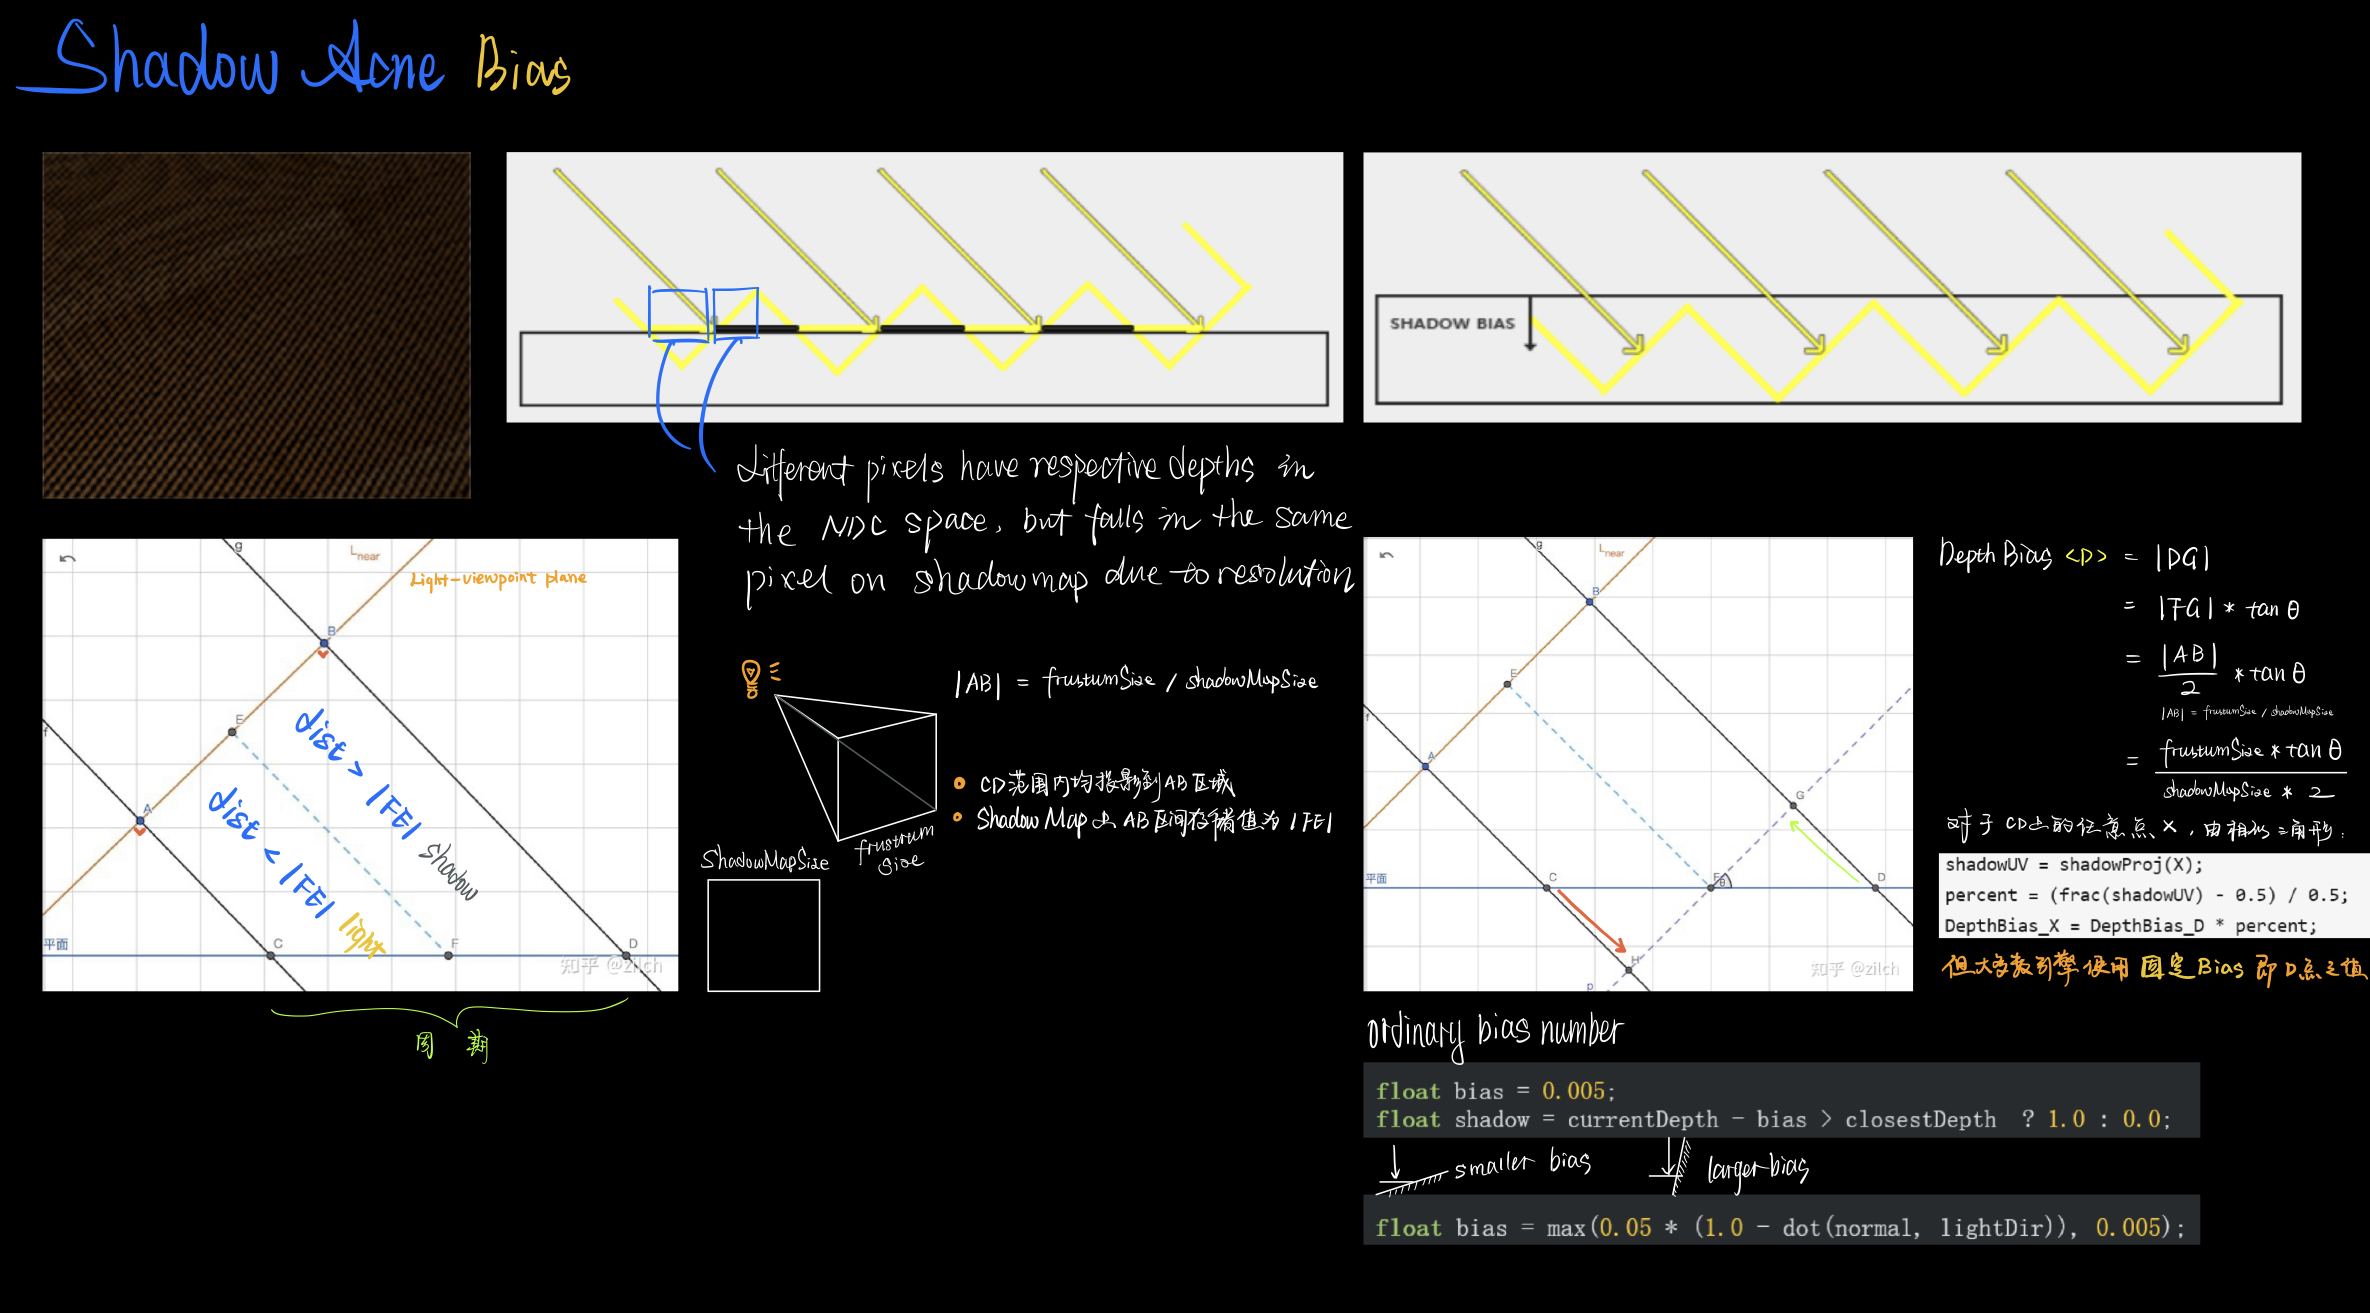 Shadow Acne Bias
SHADOW BIAS
different pixels have respective depths in
the NDC space, but falls in the same
pixel on shadowmap due to resolution
g
L near
Light-viewpoint plane
B
E
f
A
dist > |FE| shadow
dist < |FE| light
平面
C
F
D
知乎 @zilch
周期
|AB| = frustumSize / shadowMapSize
CD范围内均投影到AB区域
Shadow Map上AB区间存储值为|FE|
frustrum
Size
ShadowMapSize
g
L near
B
E
f
A
G
平面
C
F
θ
D
H
p
知乎 @zilch
Depth Bias <D> = |DG|
= |FG| * tan θ
= |AB| / 2 * tan θ
|AB| = frustumSize / shadowMapSize
= frustumSize * tan θ
shadowMapSize * 2
对于CD上的任意点X，由相似三角形：
shadowUV = shadowProj(X);
percent = (frac(shadowUV) - 0.5) / 0.5;
DepthBias_X = DepthBias_D * percent;
但大多数引擎使用固定Bias即D点之值
ordinary bias number
float bias = 0.005;
float shadow = currentDepth - bias > closestDepth ? 1.0 : 0.0;
smaller bias
larger bias
float bias = max(0.05 * (1.0 - dot(normal, lightDir)), 0.005);